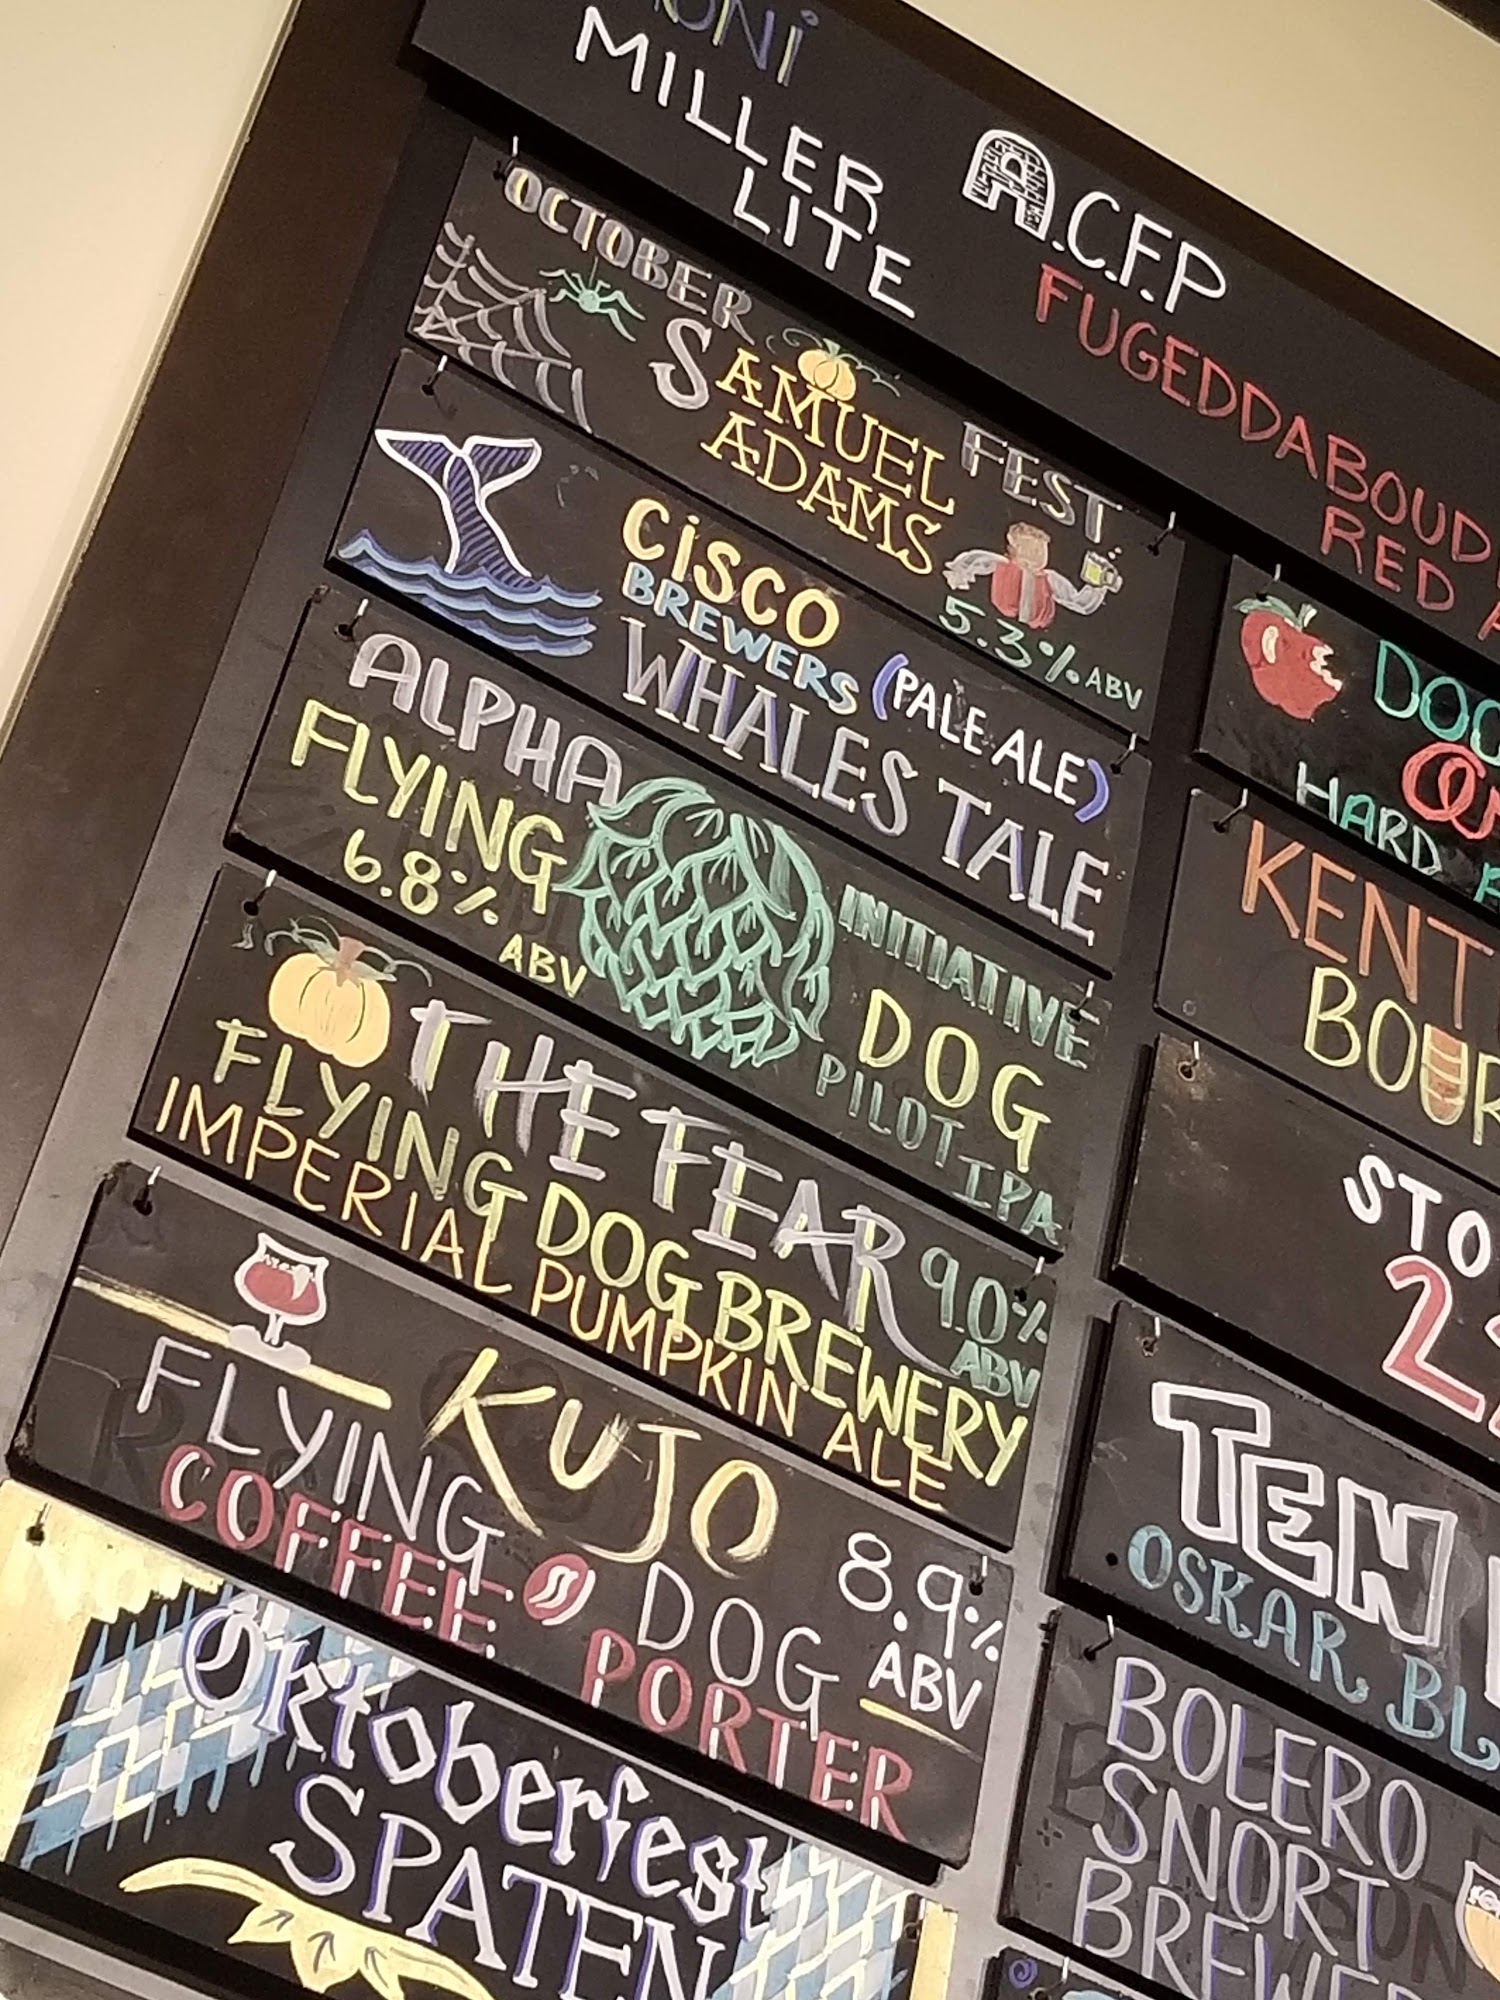 MILLER
LITE
A.C.F.P
FUGEDDABOUD
RED
OCTOBER FEST
SAMUEL
ADAMS
5.3% ABV
CiSCO
BREWERS (PALE ALE)
WHALES TALE
ALPHA INITIATIVE
FLYING DOG
6.8% ABV
PILOT IPA
THE FEAR
FLYING DOG BREWERY
9.0%
ABV
IMPERIAL PUMPKIN ALE
KUJO
FLYING DOG
8.9%
ABV
COFFEE PORTER
Oktoberfest
SPATEN
HARD
KENT
BOUR
STO
TEN
OSKAR BL
BOLERO
SNORT
BREWE